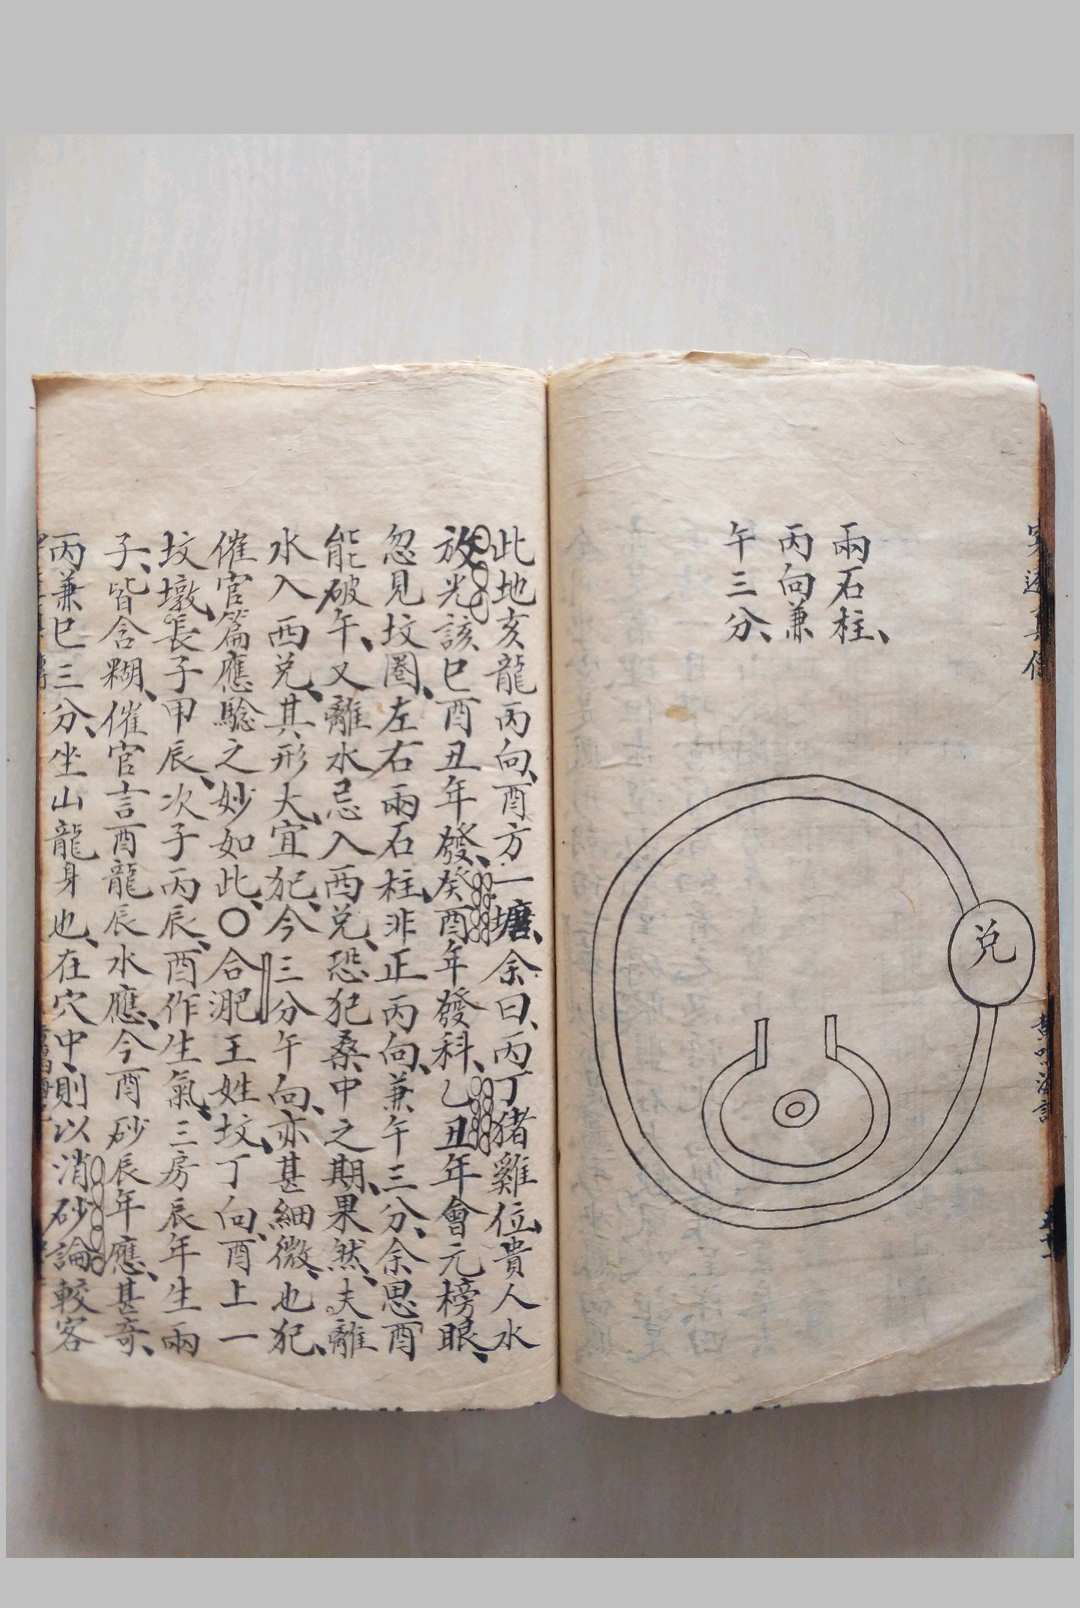 兩石柱、
丙向兼
午三分、
兌
此地亥龍丙向、酉方一塘、余曰、丙丁猪雞位、貴人水
放光該巳酉丑年發、癸酉年發科、乙丑年會元榜眼、
忽見坟圈、左右兩石柱、非正丙向、兼午三分、余思酉
能破午、又離水忌入西兌、恐犯桑中之期、果然、夫離
水入西兌、其形大、宜犯、今三分午向、亦甚細微、也犯、
催官篇應驗之妙如此、〇合淝王姓坟、丁向、酉上一
坟墩、長子甲辰、次子丙辰、酉作生氣、三房辰年生兩
子、皆含糊、催官言酉龍辰水應、今酉砂辰年應、甚奇、
丙兼巳三分、坐山龍身也、在穴中、則以消砂論較客